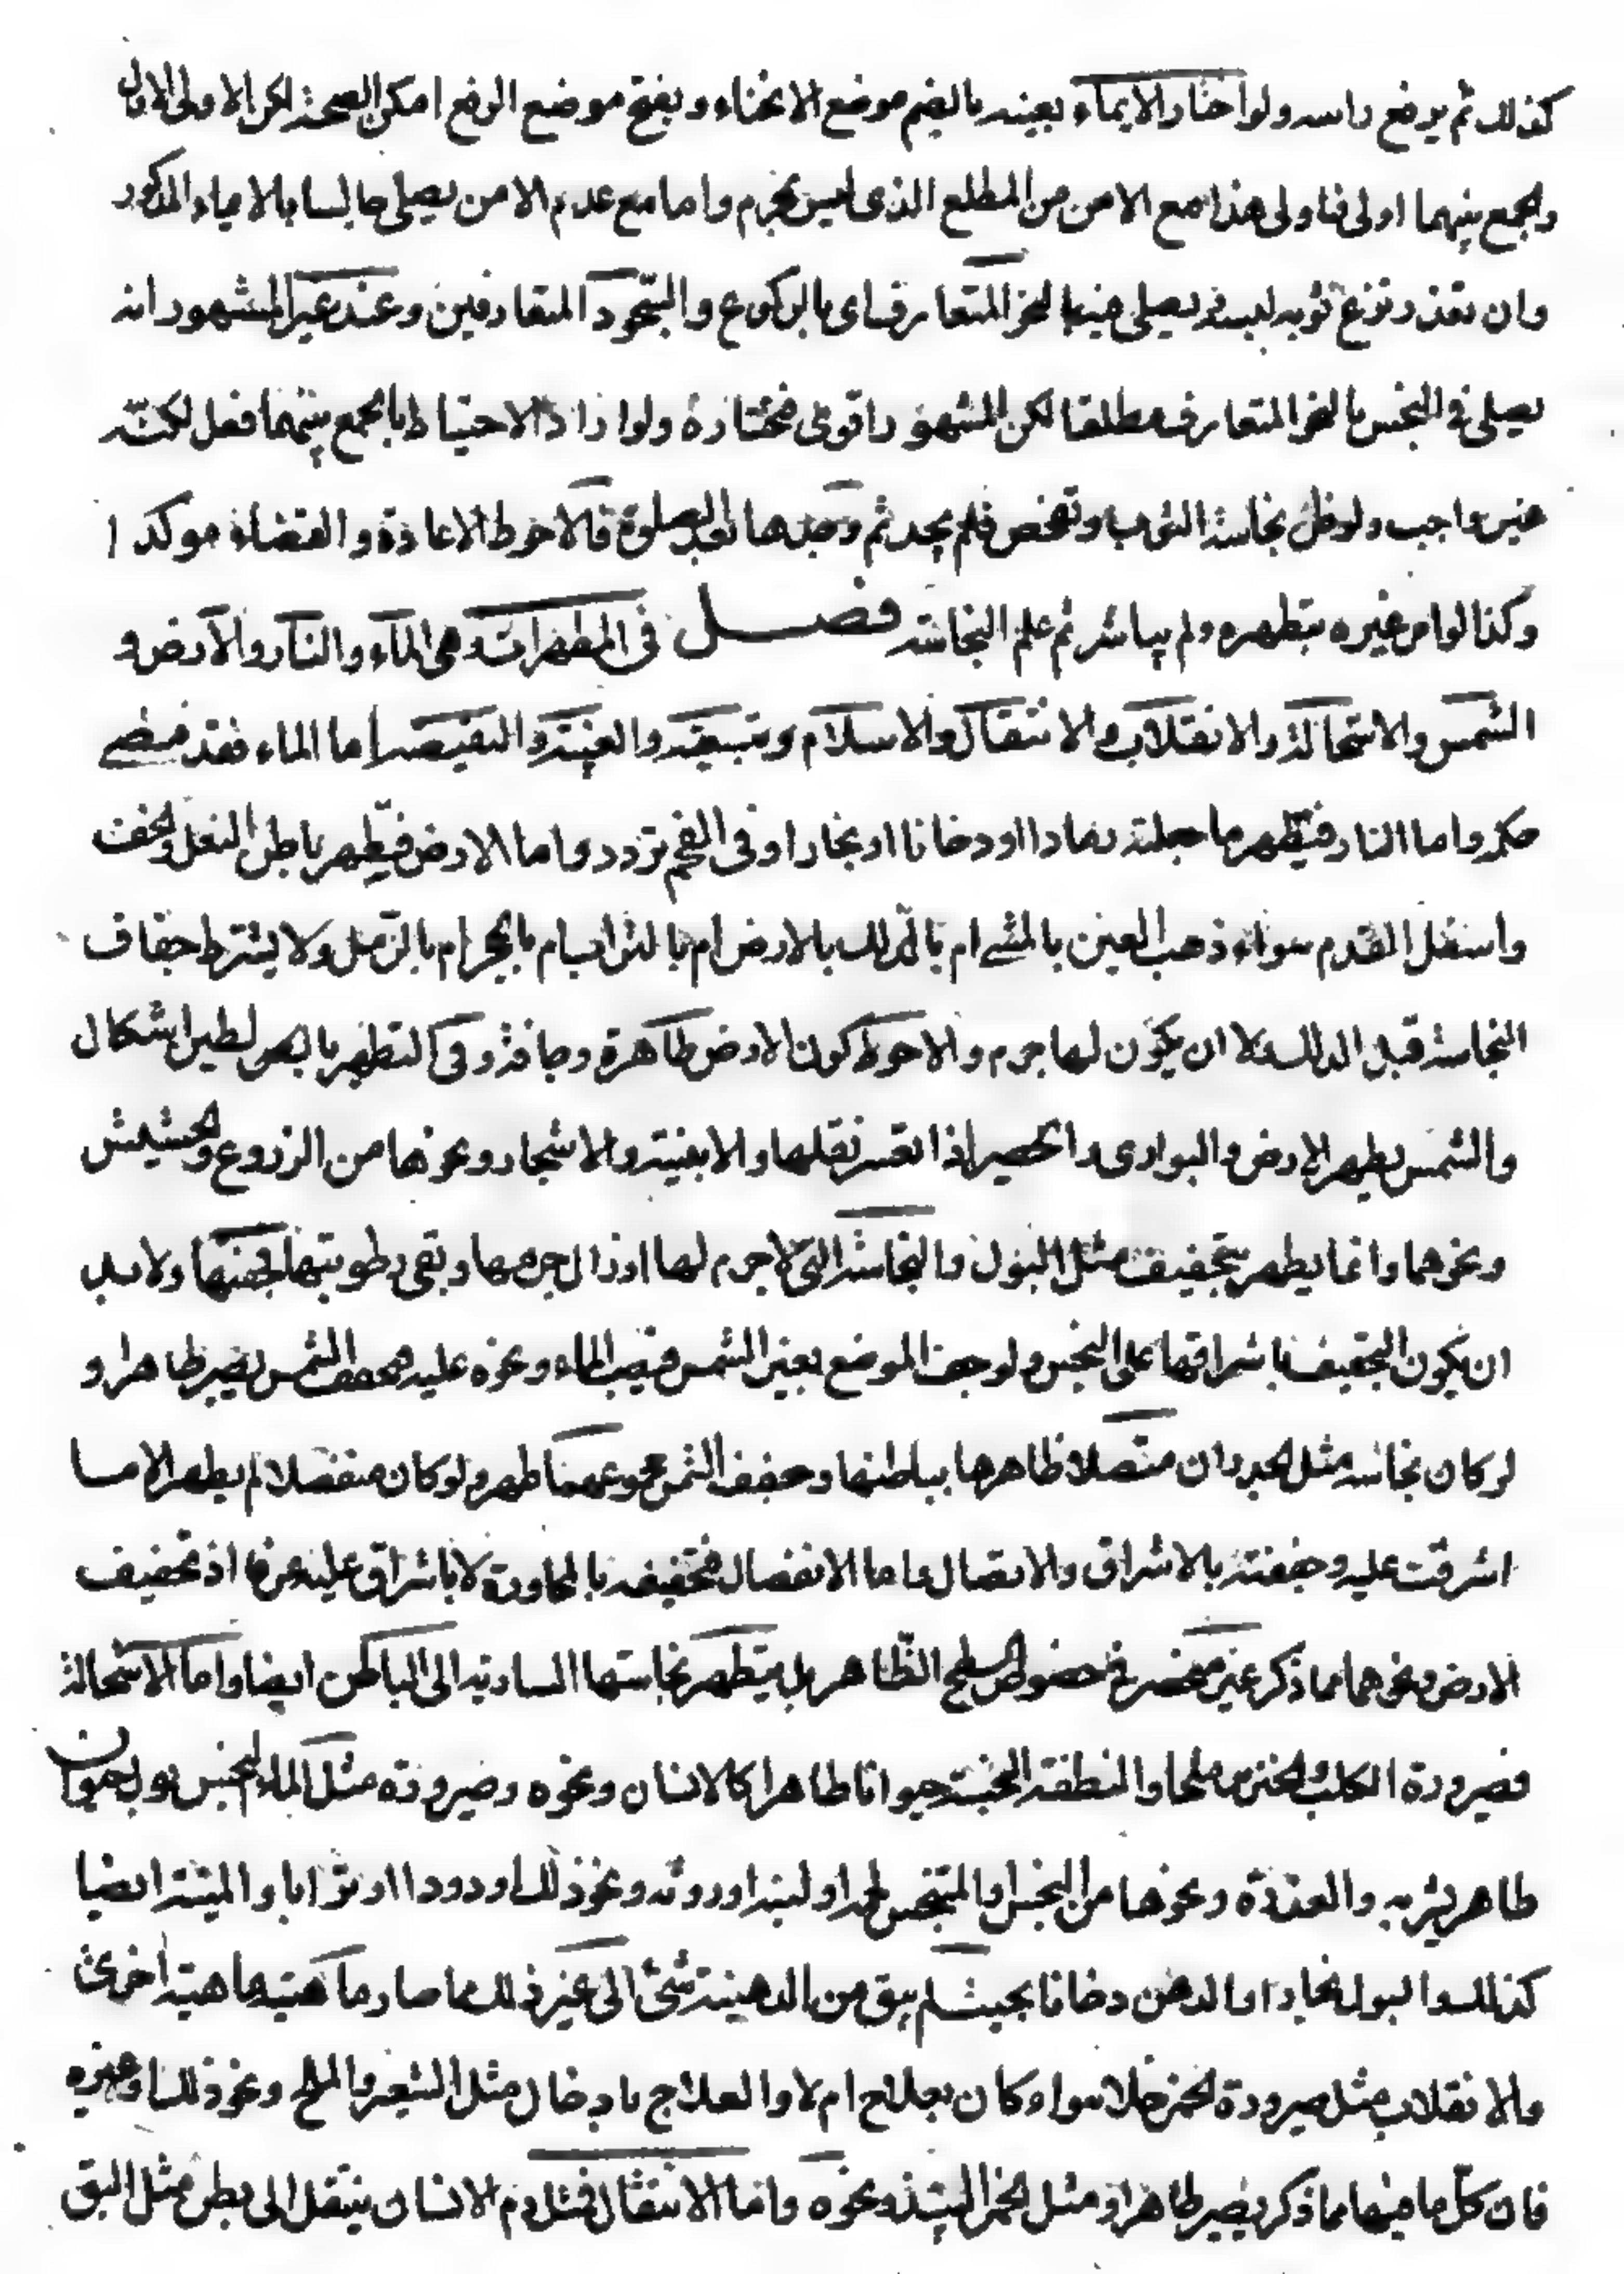 كذلك ثم يرفع راسه ولو اختار الايماء بعينه بالغمض موضع الانحناء وبفتح موضع الرفع امكن الصحة لكن الاولى الاول
والجمع بينهما اولى فاولى هذا مع الامن من المطلع الذى ليس بمحرم واما مع عدم الامن يصلى جالسا بالايماء المذكور
وان تعذر نزع ثوبه لبسه ويصلى فيه بالنحو المتعارف اى بالركوع والسّجود المتعارفين وعند غير المشهور انه
يصلى فى النجس بالنحو المتعارف مطلقا لكن المشهور اقوى فختاره ولو اراد الاحتياط بالجمع بينهما فعل لكنّه
غير واجب ولو ظن نجاسة الثوب وتفحص فلم يجد ثم وجدها بعد الصلوة فالاحوط الاعادة والقضاء موكدا
وكذا لو امر غيره بتطهره ولم يباشر ثم علم النجاسة فصل فى المطهرات وهى الماء والنار والارض و
الشمس والاستحالة والانقلاب والانتقال والاسلام وتبعيته والغيبة والنقيصه اما الماء فقد مضى
حكمه واما النار فيطهر ما جعلته رمادا او دخانا او بخارا وفى الفحم تردد واما الارض فيطهر باطن النعل والخف
واسفل القدم سواء ذهب العين بالمشى ام بالدلك بالارض ام بالتراب ام بالحجر ام بالرّمل ولا يشترط جفاف
النجاسة قبل الدلك ولا ان يكون لها جرم والاحوط كون الارض طاهرة وجافة وفى التطهر بالوحل لطين اشكال
والشمس يطهر الارض والبوارى والحصير اذا تعسر نقلها والابنية والاشجار ونحوها من الزروع والحشيش
ونحوهما وانما يطهر بتجفيف مثل البول والنجاسة التى لا جرم لها او زال جرمها وبقى رطوبتها فجففتها ولا بد
ان يكون التجفيف باشراقها على النجس ولو جف الموضع بغير الشمس فيصب الماء ونحوه عليه فجففه الشمس يصير طاهرا و
لو كان نجاسة مثل الجدران متصلا ظاهرها بباطنها وجفف الشمس مجموعهما طهر ولو كان منفصلا لم يطهر الا ما
اشرقت عليه وجففته بالاشراق والاتصال واما الانفصال فتجفيفه بالمجاورة لا باشراق عليه عرفا اذ تجفيف
الارض ونحوهما مما ذكر غير منحصر فى خصوص السطح الظّاهر بل يتطهر نجاستها السارية الى الباطن ايضا واما الاستحالة
فصيرورة الكلب والخنزير ملحا والنطفة النجسة حيوانا طاهرا كالانسان ونحوه وصيرورته مثل الماء النجس بول حيوان
طاهر يشربه والعذرة ونحوها من النجس او المتنجس لحما او لبنا او روثه ونحو ذلك او دودا او ترابا والميتة ايضا
كذلك والبول بخارا والدهن دخانا بحيث لم يبق من الدهنية شئ الى غير ذلك مما صار ماهيته ماهية اخرى
والانقلاب مثل صيرورة الخمر خلا سواء كان بعلاج ام لا والعلاج بادخال مثل الشعير والملح ونحو ذلك او غيره
فان كلّ ما فيها مما ذكر يصير طاهرا ومثل الخمر النبيذ ونحوه واما الانتقال فمثل دم الانسان ينتقل الى بطن مثل البق